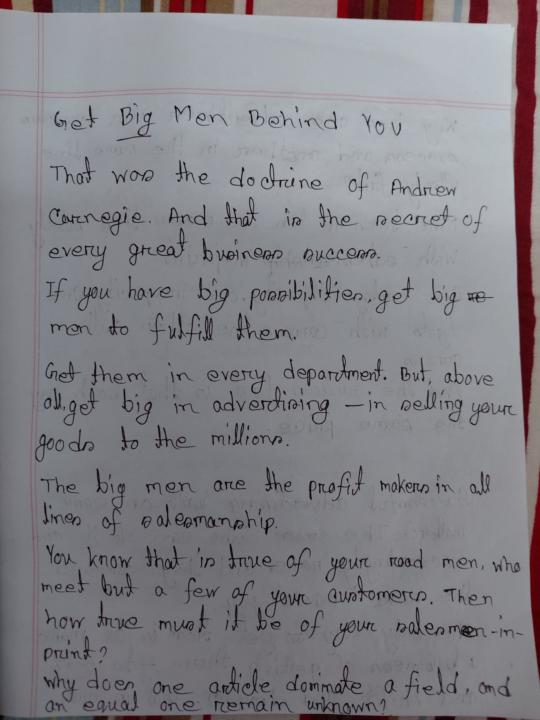 Get Big Men Behind You
That was the doctrine of Andrew
Carnegie. And that is the secret of
every great business success.
If you have big possibilities, get big
men to fulfill them.
Get them in every department. But, above
all, get big in advertising — in selling your
goods to the millions.
The big men are the profit makers in all
lines of salesmanship.
You know that is true of your road men, who
meet but a few of your customers. Then
how true must it be of your salesmen-in-
print?
Why does one article dominate a field, and
an equal one remain unknown?